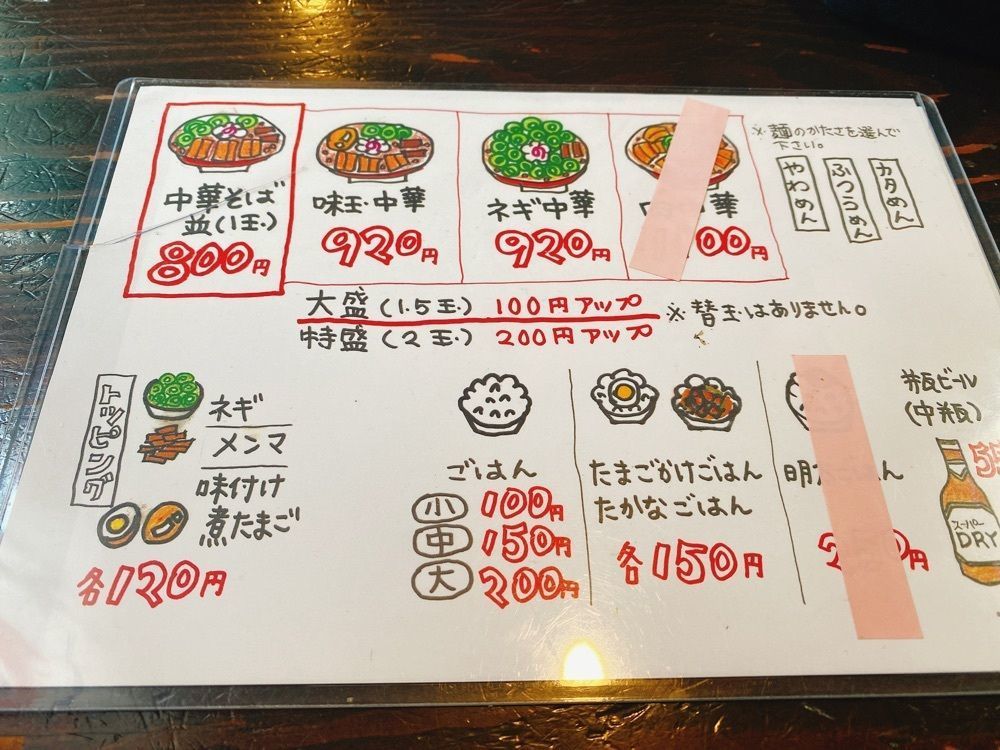 中華そば
並(1玉)
800円
味玉・中華
920円
ネギ中華
920円
華
00円
※麺のかたさを選んで
下さい。
やわめん
ふつうめん
カタめん
大盛(1.5玉) 100円アップ
特盛(2玉) 200円アップ
※替玉はありません。
トッピング
ネギ
メンマ
味付け
煮たまご
各120円
ごはん
小 100円
中 150円
大 200円
たまごかけごはん
たかなごはん
各150円
明
ん
円
瓶ビール
(中瓶)
スーパー
DRY